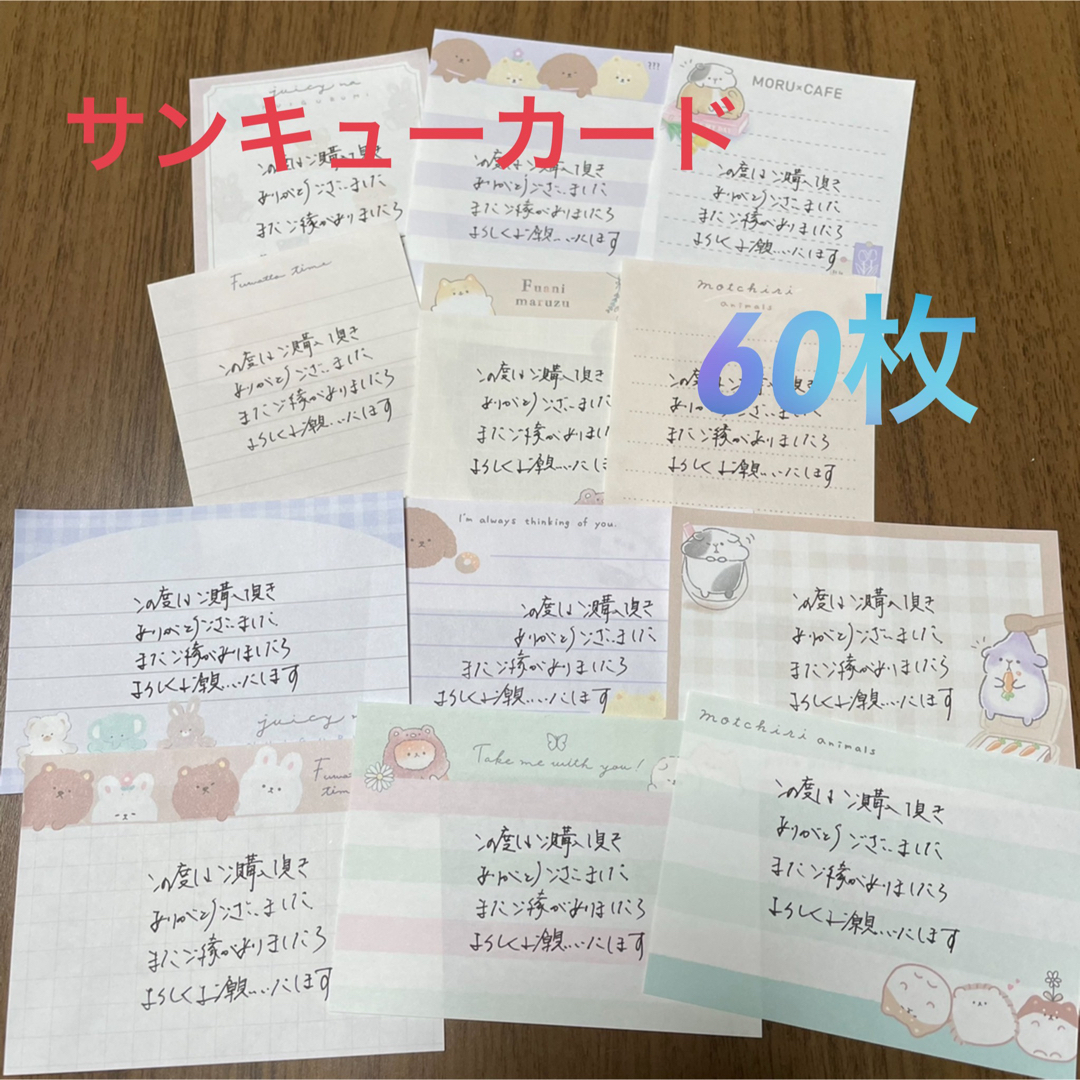 サンキューカード
60枚
juicy na
この度はご購入頂き
ありがとうございました
またご縁がありましたら
!!!
この度はご購入頂き
ありがとうございました
またご縁がありましたら
よろしくお願いいたします
MORU×CAFE
この度はご購入頂き
ありがとうございました
またご縁がありましたら
よろしくお願いいたします
Fuwatta time
この度はご購入頂き
ありがとうございました
またご縁がありましたら
よろしくお願いいたします
Funni
maruzu
この度はご購入頂き
ありがとうござい
またご縁がありま
よろしくお願いいた
motchiri
animals
この度はご購入頂き
ありがとうございました
またご縁がありましたら
よろしくお願いいたします
この度はご購入頂き
ありがとうございました
またご縁がありましたら
よろしくお願いいたします
juicy
I'm always thinking of you.
この度はご購入頂き
ありがとうございました
またご縁がありましたら
よろしくお願いいたします
この度はご購入頂き
ありがとうございました
またご縁がありましたら
よろしくお願いいたします
Fuwatta
time
この度はご購入頂き
ありがとうございました
またご縁がありましたら
よろしくお願いいたします
Take me with you!
この度はご購入頂き
ありがとうございました
またご縁がありましたら
よろしくお願いいたします
motchiri animals
この度はご購入頂き
ありがとうございました
またご縁がありましたら
よろしくお願いいたします